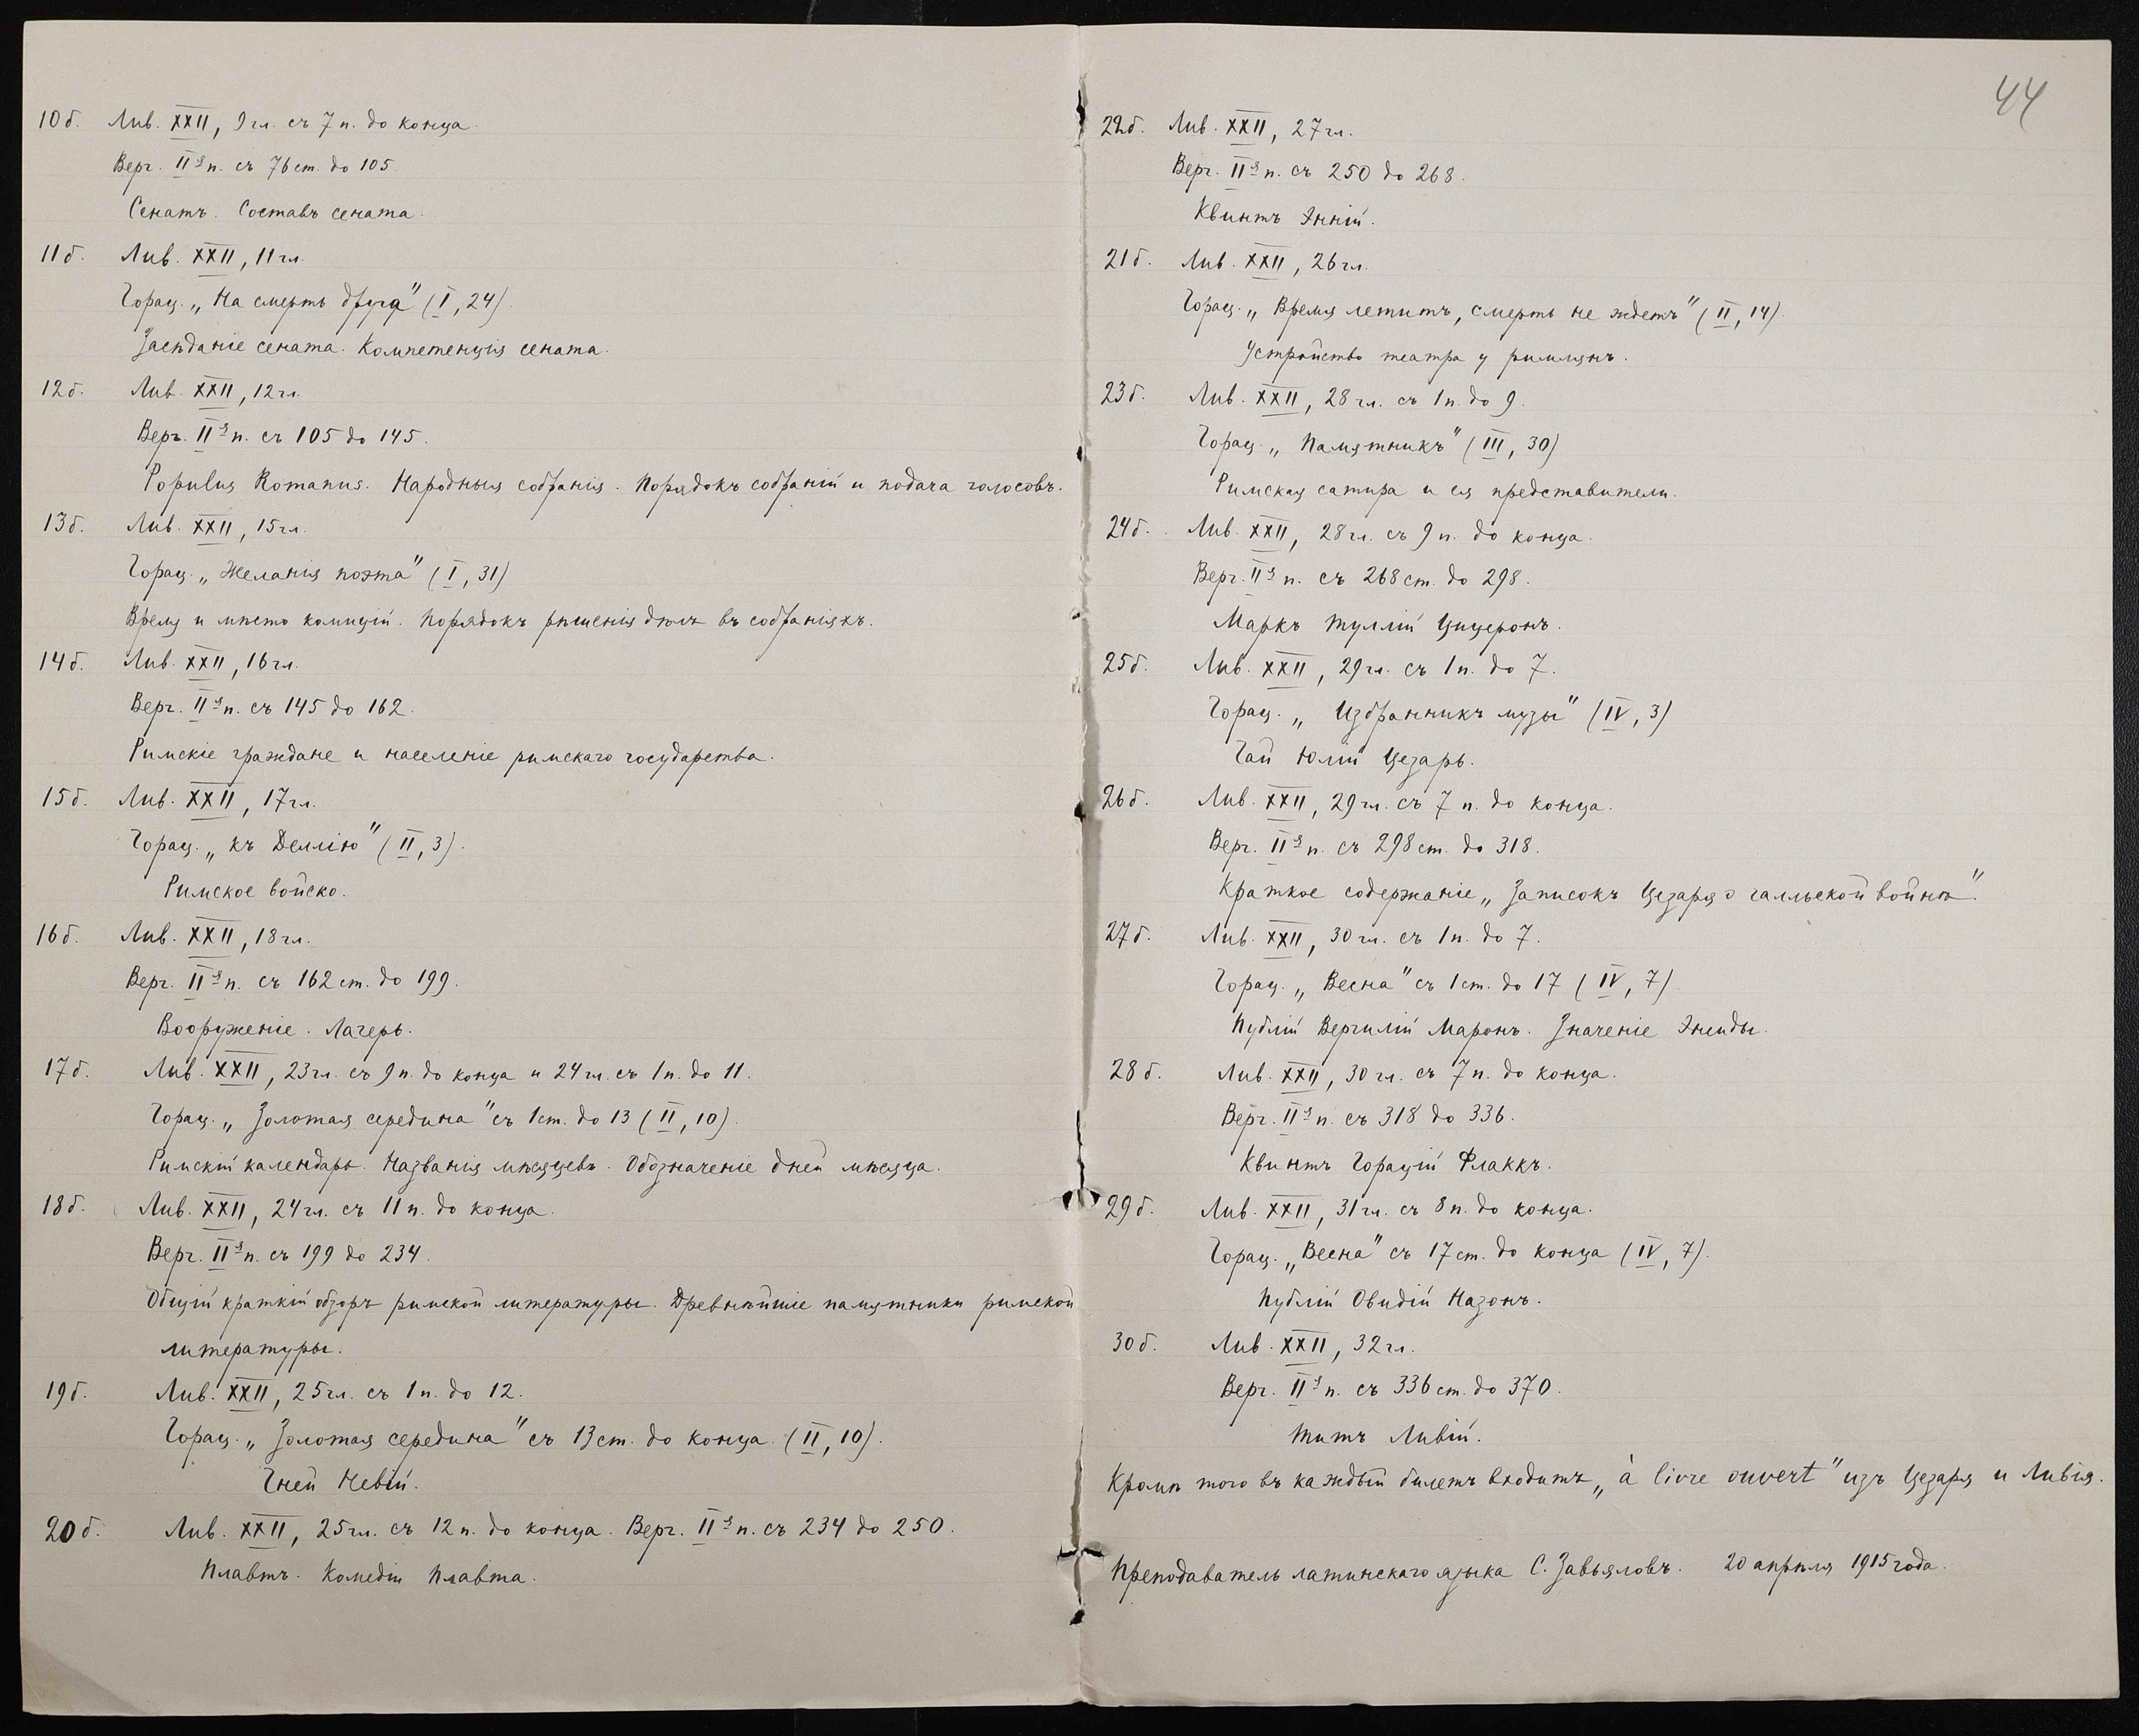 10б. Лив. XXII, 9 гл. съ 7 п. до конца.
Верг. IIя п. съ 76 ст. до 105.
Сенатъ. Составъ сената.
11б. Лив. XXII, 11 гл.
Горац. „На смерть друга" (I, 24).
Засѣданіе сената. Компетенція сената.
12б. Лив. XXII, 12 гл.
Верг. IIя п. съ 105 до 145.
Populus Romanus. Народныя собранія. Порядокъ собраній и подача голосовъ.
13б. Лив. XXII, 15 гл.
Горац. „Желанія поэта" (I, 31)
Время и мѣсто комицій. Порядокъ рѣшенія дѣлъ въ собраніяхъ.
14б. Лив. XXII, 16 гл.
Верг. IIя п. съ 145 до 162.
Римскіе граждане и населеніе римскаго государства.
15б. Лив. XXII, 17 гл.
Горац. „Къ Деллію" (II, 3).
Римское войско.
16б. Лив. XXII, 18 гл.
Верг. IIя п. съ 162 ст. до 199.
Вооруженіе. Лагерь.
17б. Лив. XXII, 23 гл. съ 9 п. до конца и 24 гл. съ 1 п. до 11.
Горац. „Золотая середина" съ 1 ст. до 13 (II, 10).
Римскій календарь. Названія мѣсяцевъ. Обозначеніе дней мѣсяца.
18б. Лив. XXII, 24 гл. съ 11 п. до конца.
Верг. IIя п. съ 199 до 234.
Общій краткій обзоръ римской литературы. Древнѣйшіе памятники римской
литературы.
19б. Лив. XXII, 25 гл. съ 1 п. до 12.
Горац. „Золотая середина" съ 13 ст. до конца. (II, 10).
Гней Невій.
20б. Лив. XXII, 25 гл. съ 12 п. до конца. Верг. IIя п. съ 234 до 250.
Плавтъ. Комедіи Плавта.
44
22б. Лив. XXII, 27 гл.
Верг. IIя п. съ 250 до 268.
Квинтъ Энній.
21б. Лив. XXII, 26 гл.
Горац. „Время летитъ, смерть не ждетъ" (II, 14).
Устройство театра у римлянъ.
23б. Лив. XXII, 28 гл. съ 1 п. до 9.
Горац. „Памятникъ" (III, 30)
Римская сатира и ея представители.
24б. Лив. XXII, 28 гл. съ 9 п. до конца.
Верг. IIя п. съ 268 ст. до 298.
Маркъ Туллій Цицеронъ.
25б. Лив. XXII, 29 гл. съ 1 п. до 7.
Горац. „Избранникъ музы" (IV, 3)
Гай Юлій Цезарь.
26б. Лив. XXII, 29 гл. съ 7 п. до конца.
Верг. IIя п. съ 298 ст. до 318.
Краткое содержаніе „Записокъ Цезаря о галльской войнѣ".
27б. Лив. XXII, 30 гл. съ 1 п. до 7.
Горац. „Весна" съ 1 ст. до 17 (IV, 7).
Публій Вергилій Маронъ. Значеніе Энеиды.
28б. Лив. XXII, 30 гл. съ 7 п. до конца.
Верг. IIя п. съ 318 до 336.
Квинтъ Горацій Флаккъ.
29б. Лив. XXII, 31 гл. съ 8 п. до конца.
Горац. „Весна" съ 17 ст. до конца (IV, 7).
Публій Овидій Назонъ.
30б. Лив. XXII, 32 гл.
Верг. IIя п. съ 336 ст. до 370.
Титъ Ливій.
Кромѣ того въ каждый билетъ входитъ „à livre ouvert" изъ Цезаря и Ливія.
Преподаватель латинскаго языка С. Завьяловъ. 20 апрѣля 1915 года.